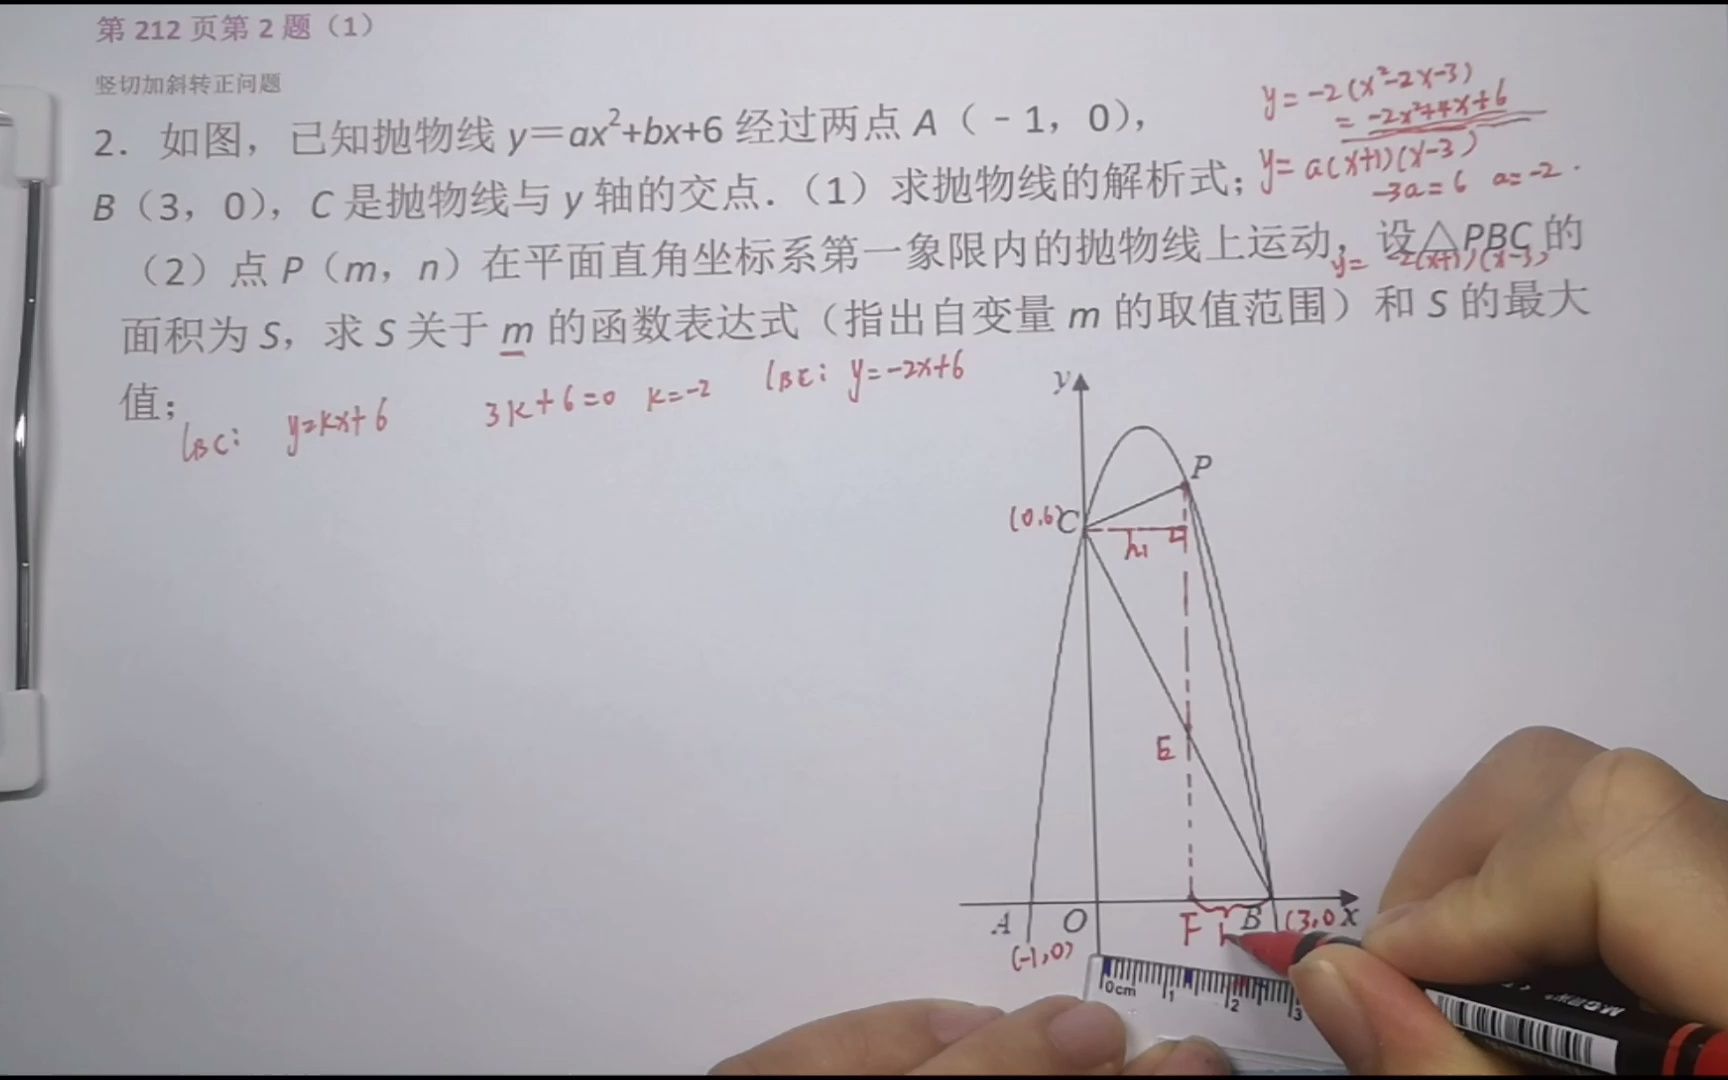 第 212 页第 2 题（1）
竖切加斜转正问题
2．如图，已知抛物线 y＝ax²+bx+6 经过两点 A（﹣1，0），
B（3，0），C 是抛物线与 y 轴的交点．（1）求抛物线的解析式；
（2）点 P（m，n）在平面直角坐标系第一象限内的抛物线上运动，设△PBC 的
面积为 S，求 S 关于 m 的函数表达式（指出自变量 m 的取值范围）和 S 的最大
值；
y=-2(x²-2x-3)
=-2x²+4x+6
y=a(x+1)(x-3)
-3a=6 a=-2.
y=-2(x+1)(x-3)
lBC: y=kx+6 3k+6=0 k=-2 lBC: y=-2x+6
y
P
(0.6) C
h1
E
A O F B (3,0 x
(-1,0)
0cm 1 2 3
M&G